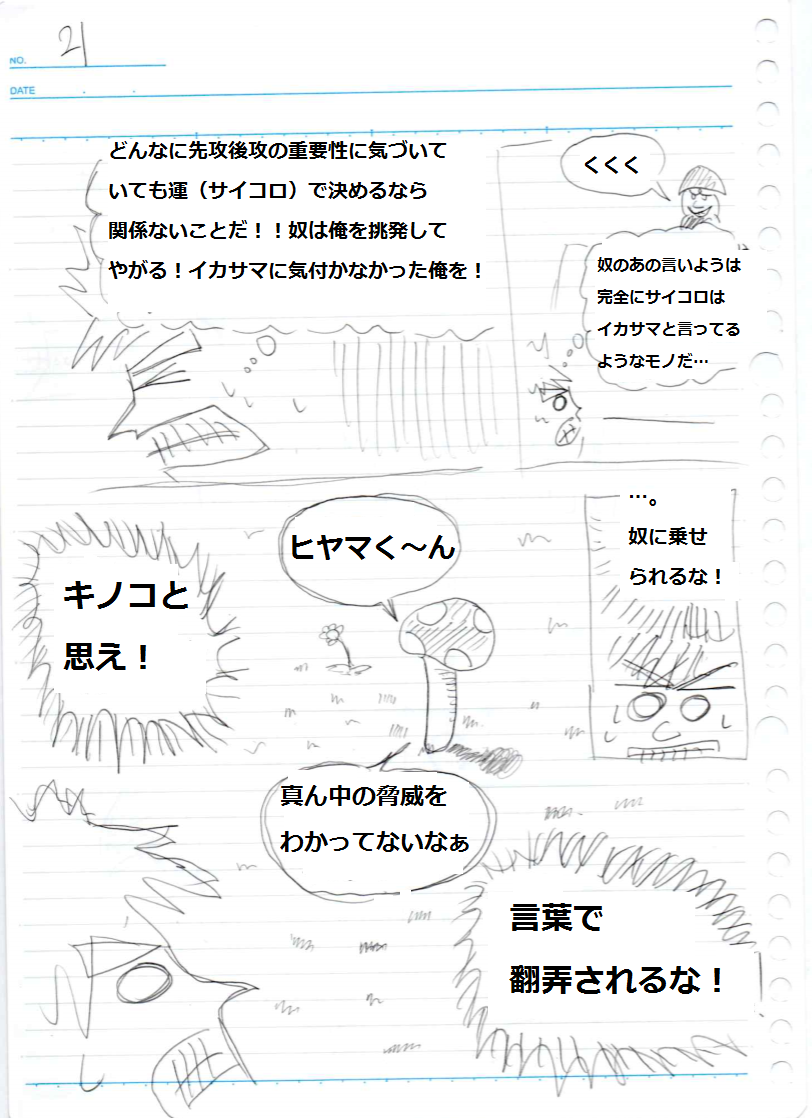 NO.
21
DATE
くくく
奴のあの言いようは
完全にサイコロは
イカサマと言ってる
ようなモノだ…
どんなに先攻後攻の重要性に気づいて
いても運（サイコロ）で決めるなら
関係ないことだ！！奴は俺を挑発して
やがる！イカサマに気付かなかった俺を！
…。
奴に乗せ
られるな！
ヒヤマく～ん
キノコと
思え！
真ん中の脅威を
わかってないなぁ
言葉で
翻弄されるな！